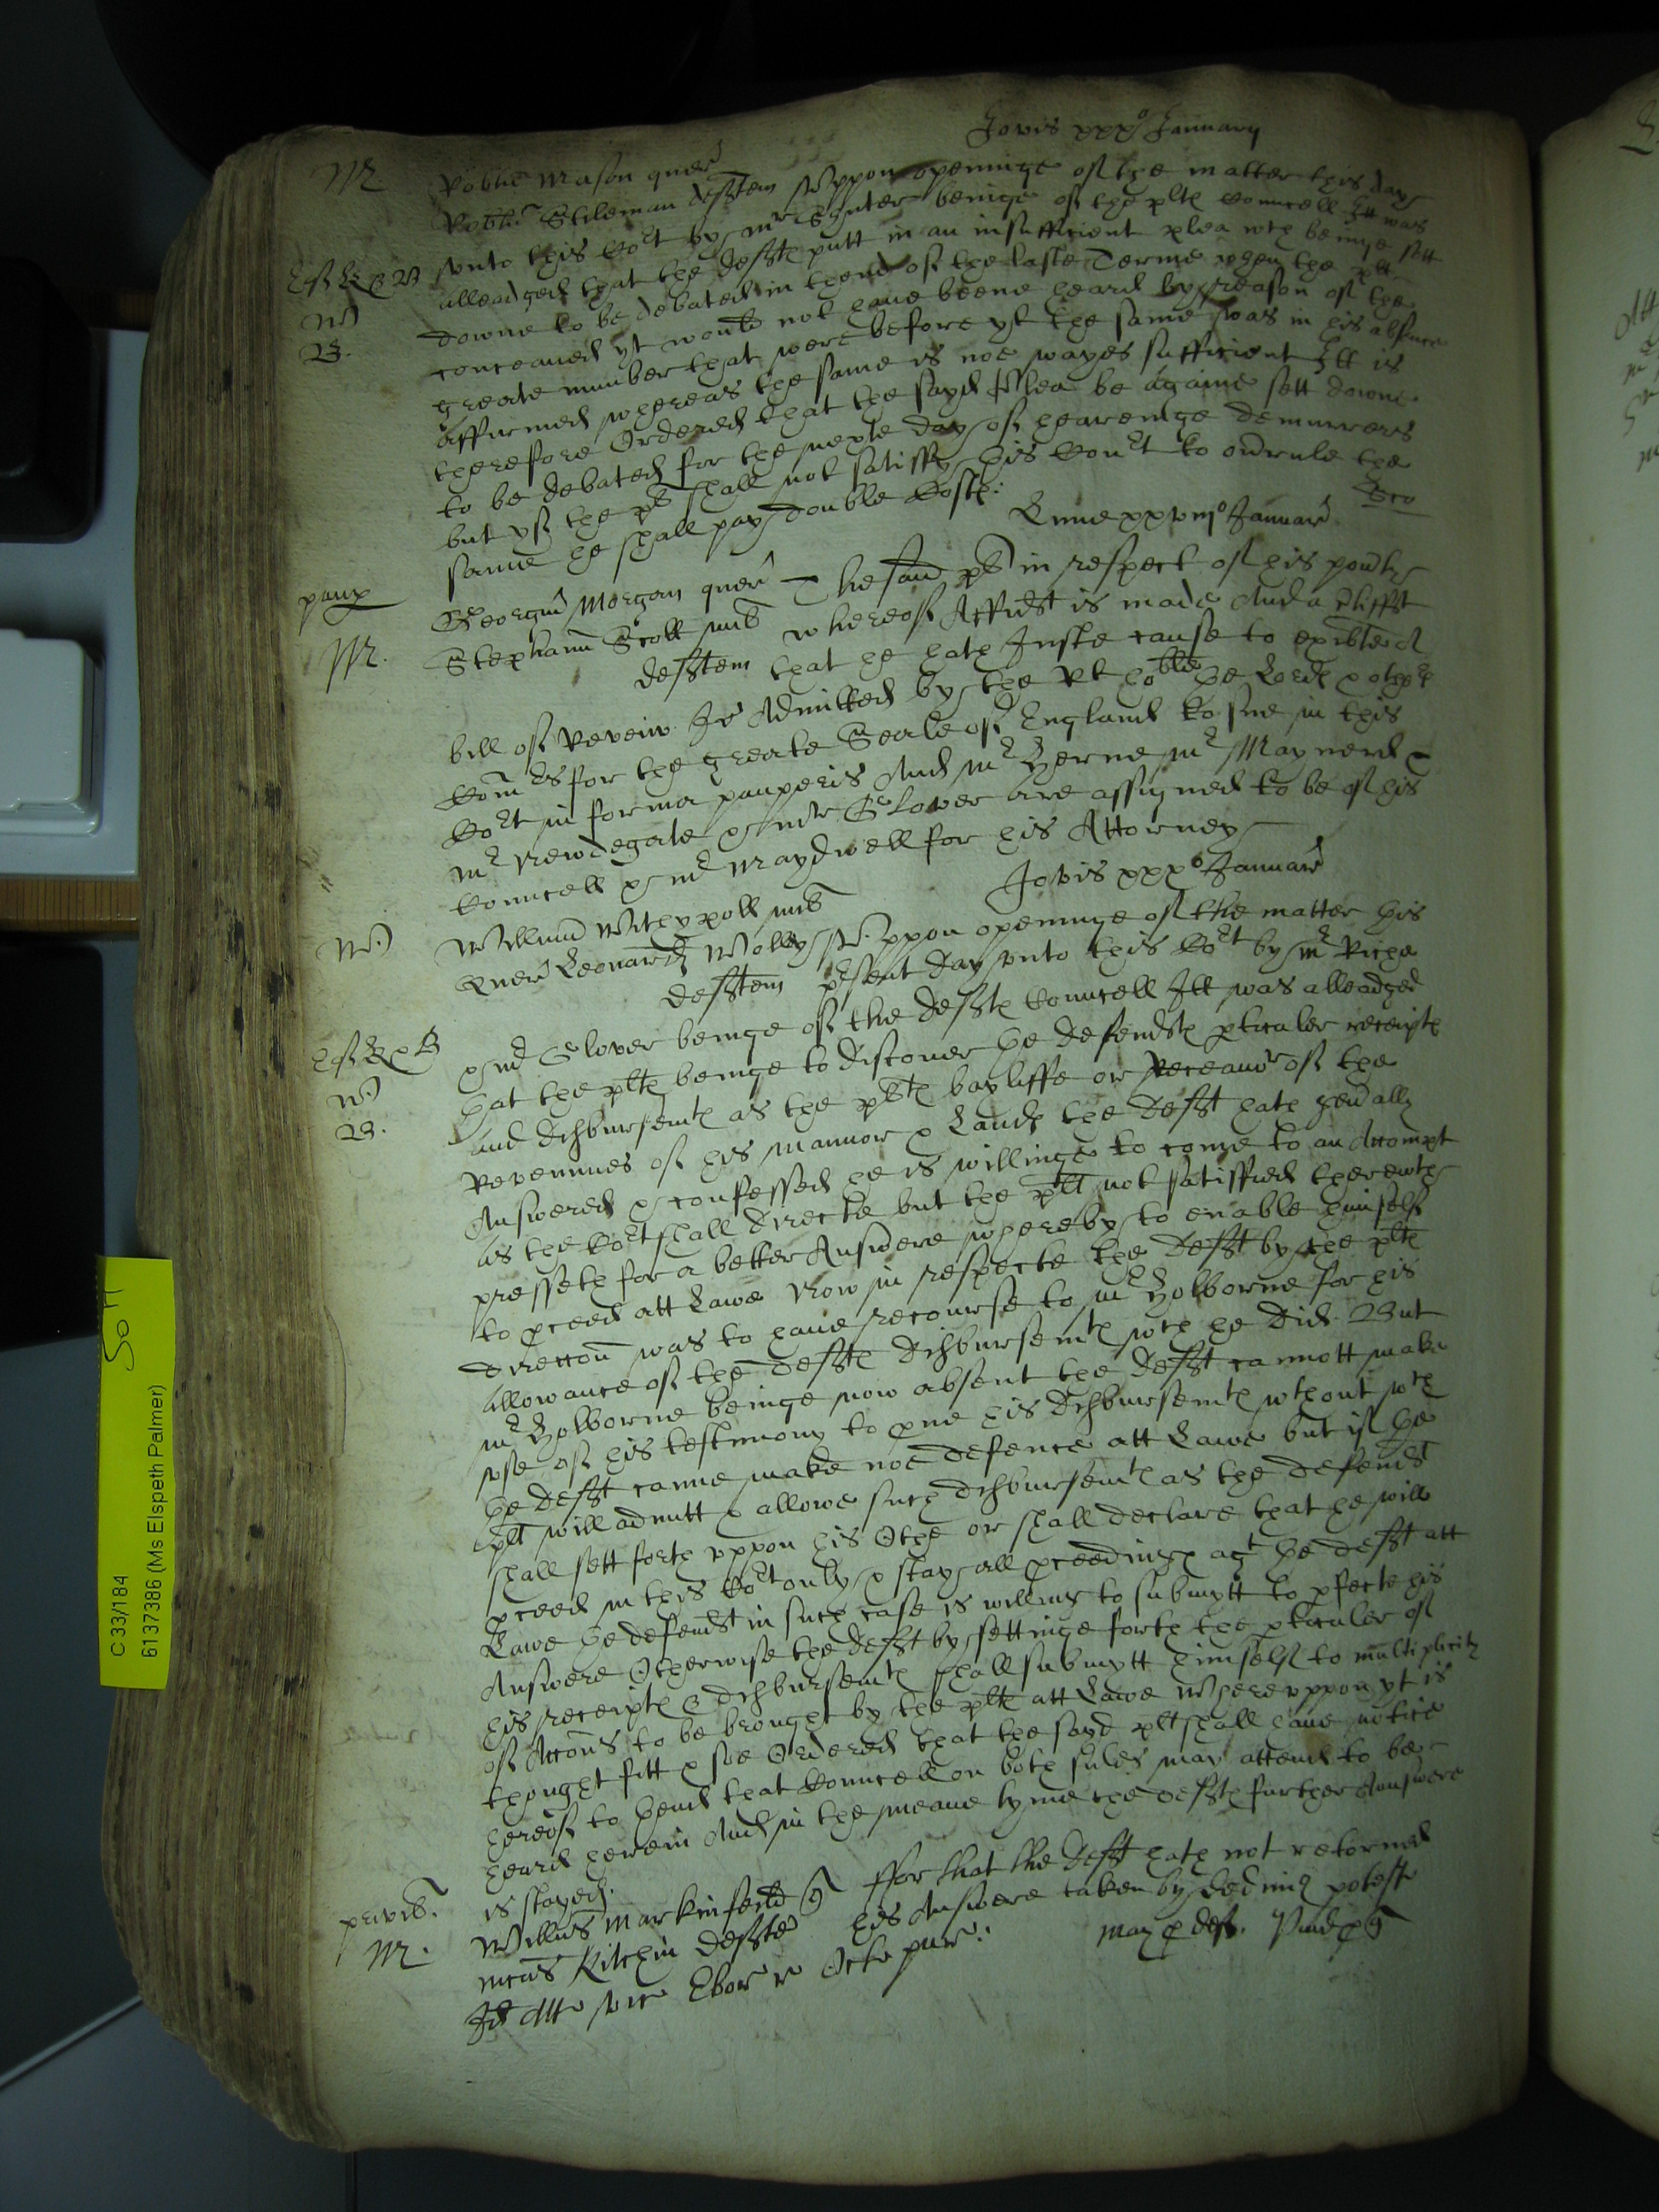 Jovis xxx° January
M^r
Robtus Mason quer
Robtus Stileman deften Uppon openinge of the matter this day
unto this Co^rt by M^r beinge of the plts Councell Itt was
alleadged that the defts putt in an insufficient plea w^ch beinge sett
downe to be debated in thend of the laste Terme when the plt
conceaved yt would not have beene heard by reason of the
greate number that were before yt the same was in his absence
affirmed whereas the same is noe wayes sufficient Itt is
therefore Ordered that the sayd Plea be againe sett downe
to be debated for the nexte day of heareinge demurrers
but yf the pl shall not satisfy this Court to overrule the
same he shall pay double Costs:
Lune xxvij° Januar
paup
M^r
Georgius Morgan quer The said pl in respect of his poverty
Stephanus Scott mil whereof Affid^t is made And a
deften that he hath Juste cause to exibite a
bill of Reveiw Is Admitted by the Rt ho^ble the Lords & other
Com^rs for the greate Seale of England to sue in this
Co^rt in forma pauperis And M^r Herne M^r Maynerd &
M^r Newdegate & M^r Glover are assigned to be of his
Councell & M^r Maydwell for his Attorney
Jovis xxx° Januar
W
Willimus Withypoll mil
Quer Leonardus Wolley Uppon openinge of the matter this
deften present day unto this Co^rt by M^r Riche
& M^r Glover beinge of the defts Councell Itt was alleadged
that the plts beinge to discover the defend^ts pticuler receipts
and disbursem^ts as the plts bayliffe or Receav^r of the
Revennues of his mannor & Lands the deft hath gen̄ally
Answered & confessed he is willinge to come to an Accompt
as the Co^rt shall directe but the plt not satisfied therewth
presseth for a better Answere whereby to enable himself
to pceed att Lawe Now in respecte the deft by the plts
direccon was to have recourse to M^r Holborne for his
allowance of the defts disbursem^ts w^ch he did But
M^r Holborne beinge now absent the deft cannott make
use of his testimony to prove his disbursem^ts w^thout w^ch
the deft canne make noe defence att Lawe but if the
plt will admitt & allowe such disbursem^ts as the defend^t
shall sett forth uppon his Othe or shall declare that he will
pceed in this Co^rt only & stay all pceedings ag^t the deft att
Lawe the defend^t in such case is willing to submytt to pfecte his
Answere Otherwise the deft by settinge forth the pticuler of
his receipts & disbursem^ts shall submytt himself to multiplicity
of Accons to be brought by the plts att Lawe Whereuppon yt is
thought fitt & soe Ordered that the sayd plt shall have notice
hereof to thend that Councell on both sides may attend to be
heard herein And in the meane tyme the defts further Answere
is stayed.
M^r.
Willus Markinfeild q ffor that the deft hath not retorned
Kitchin defte his Answere taken by potest
Id Att vic Ebor r Octa pur:
C 33/184
6137386 (Ms Elspeth Palmer)